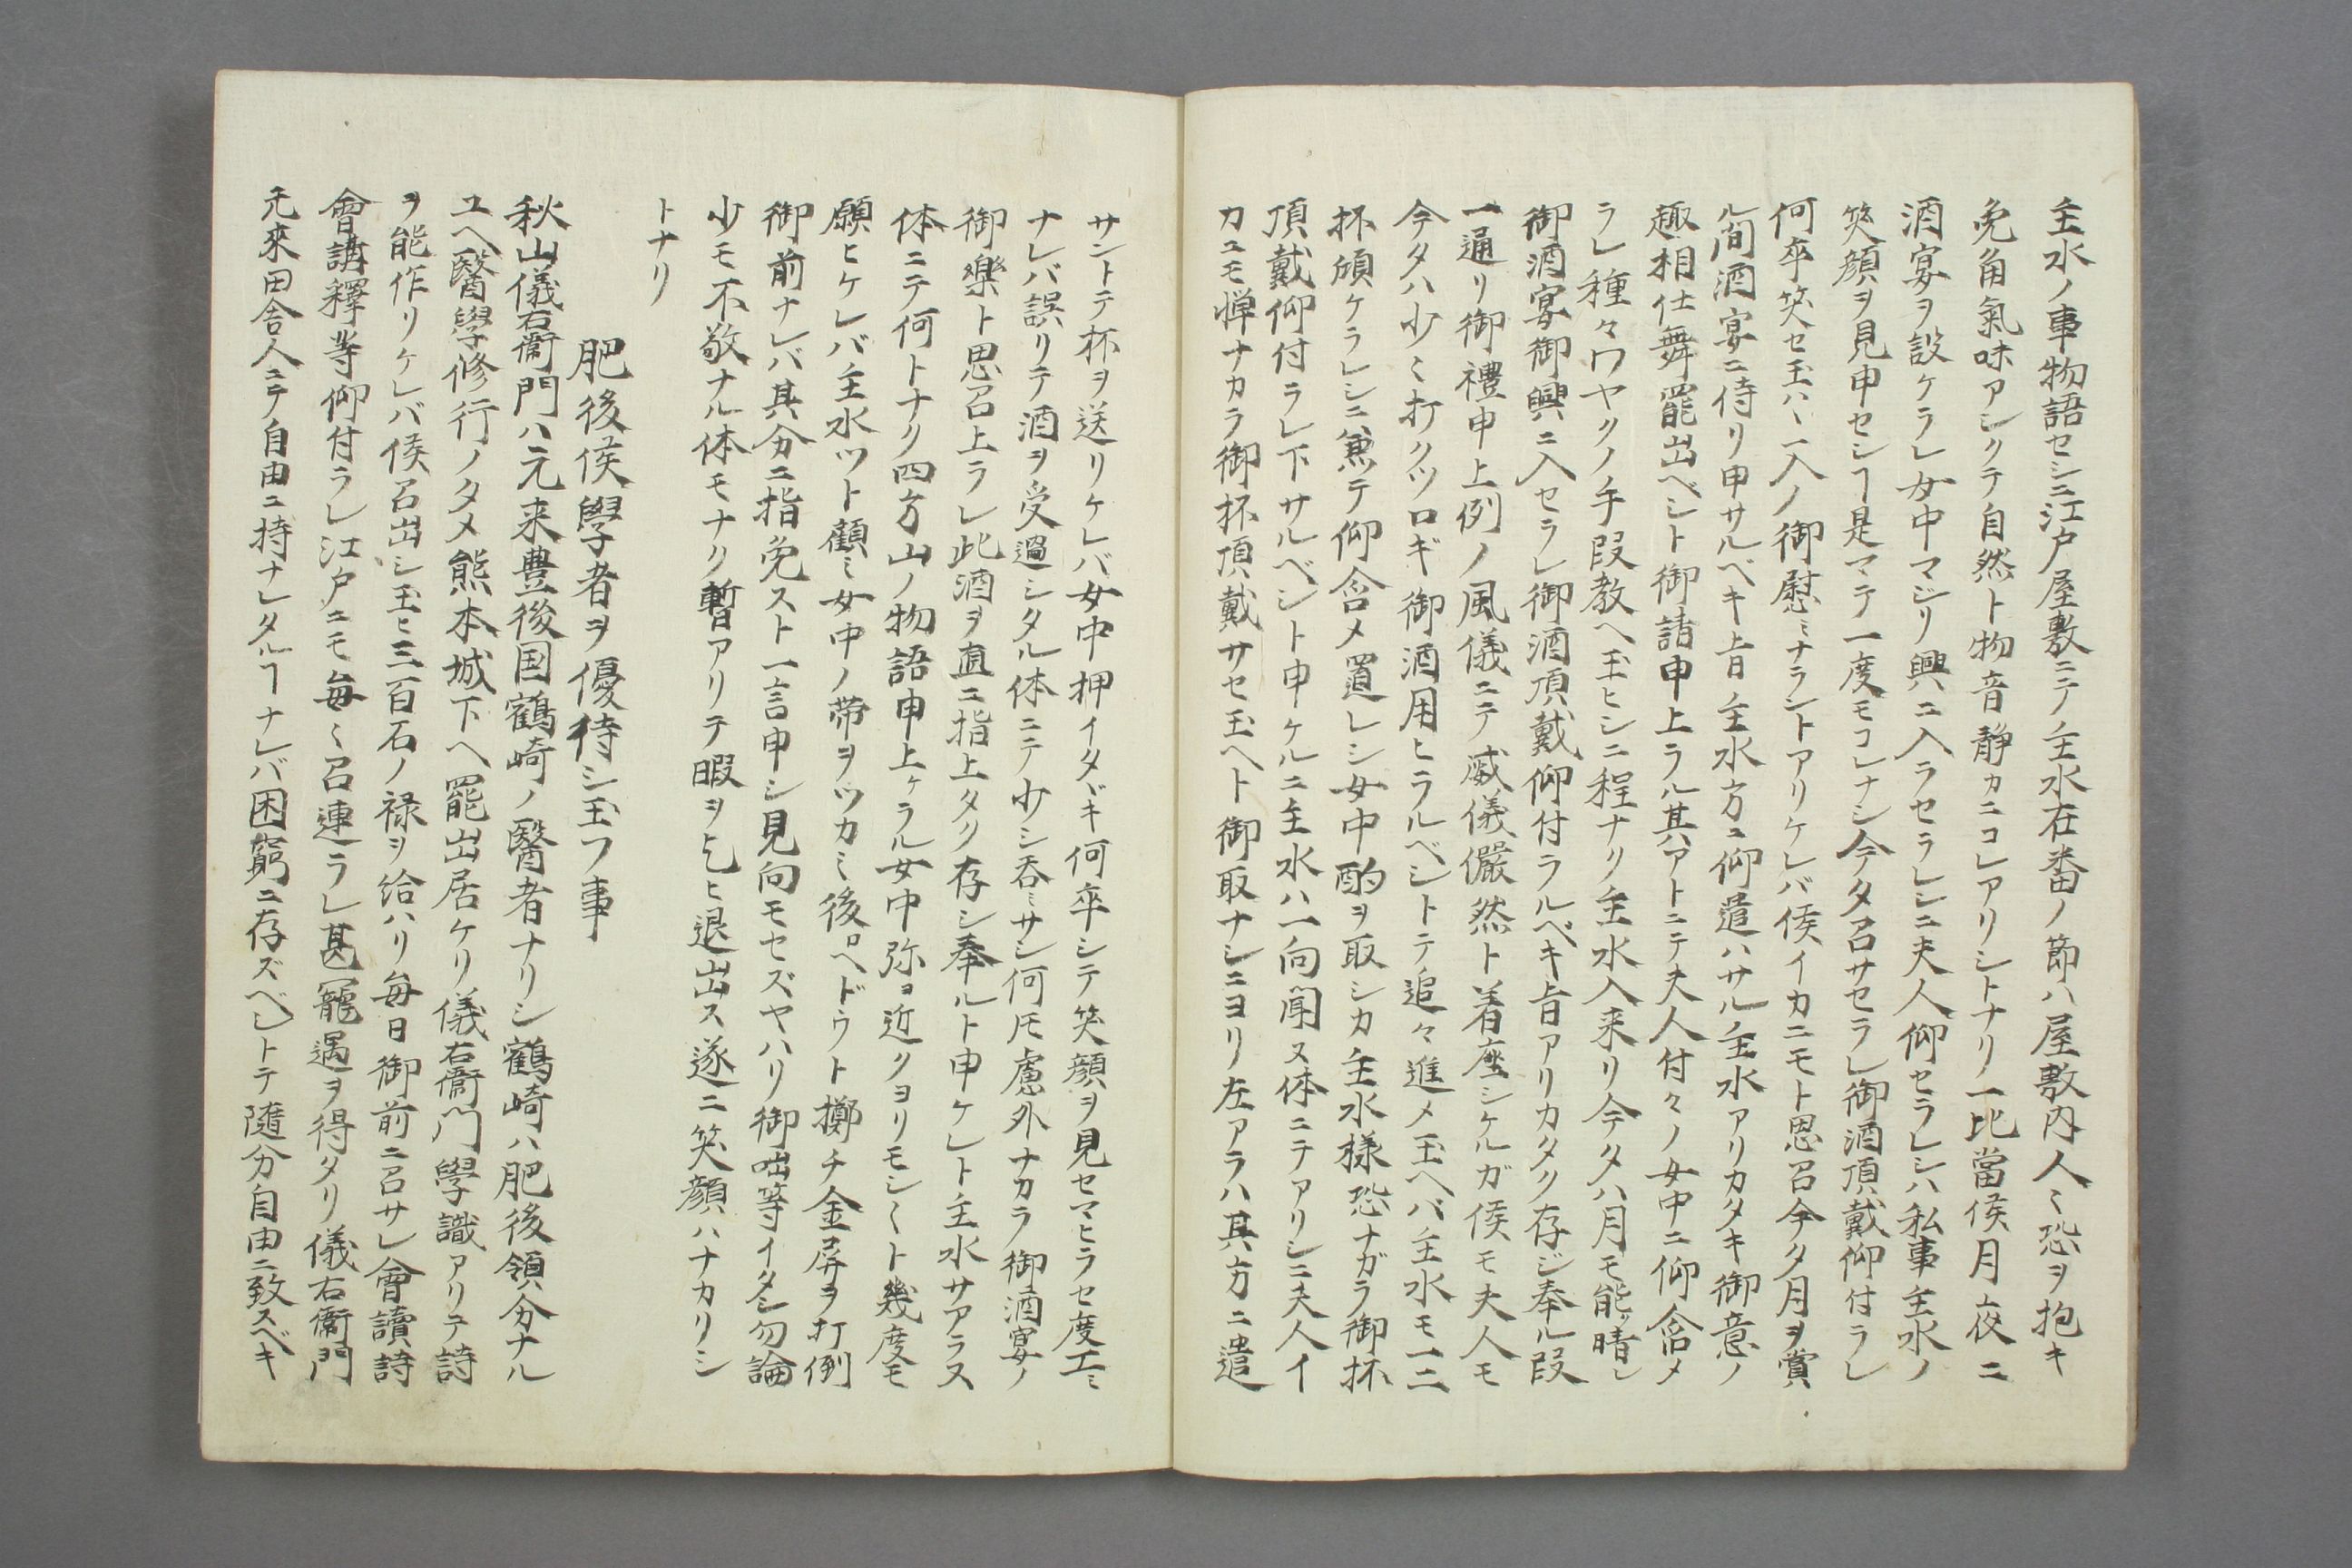 主水ノ事物語セシニ江戸屋敷ニテノ主水在番ノ節ハ屋敷内人〻恐ヲ抱キ
兔角氣味アシクテ自然ト物音静カニコレアリシトナリ一比當侯月夜ニ
酒宴ヲ設ケラレ女中マジリ興ニ入ラセラレシニ夫人仰セラレシハ私事主水ノ
笑顔ヲ見申セシヿ是マテ一度モコレナシ今夕召サセラレ御酒頂戴仰付ラレ
何卒笑セ玉ハヽ一入ノ御慰ミナラントアリケレバ侯イカニモト思召今夕月ヲ賞
ル間酒宴ニ侍リ申サルベキ旨主水方ヱ仰遣ハサル主水アリカタキ御意ノ
趣相仕舞罷出ベシト御請申上ラル其アトニテ夫人付々ノ女中ニ仰含メ
ラレ種々ワヤクノ手段教ヘ玉ヒシニ程ナク主水入来リ今夕ハ月モ能ク晴レ
御酒宴御興ニ入セラレ御酒頂戴仰付ラルベキ旨アリカタク存ジ奉ル段
一通リ御禮申上例ノ風儀ニテ威儀儼然ト着座シケルガ侯モ夫人モ
今夕ハ少〻打クツロギ御酒用ヒラルベシトテ追々進メ玉ヘバ主水モ一二
杯傾ケラレシニ兼テ仰含メ置レシ女中酌ヲ取シカ主水様恐ナガラ御杯
頂戴仰付ラレ下サルベシト申ケルニ主水ハ一向聞ヌ体ニテアリシニ夫人イ
カニモ憚ナカラ御杯頂戴サセ玉ヘト御取ナシニヨリ左アラハ其方ニ遣
サントテ杯ヲ送リケレバ女中押イタヾキ何卒シテ笑顔ヲ見セマヒラセ度工ミ
ナレバ誤リテ酒ヲ受過シタル体ニテ少シ呑ミサシ何𪜈慮外ナカラ御酒宴ノ
御樂ト思召上ラレ此酒ヲ直ニ指上タク存シ奉ルト申ケレト主水サアラヌ
体ニテ何トナク四方山ノ物語申上ケラル女中弥ヨ近クヨリモシ〱ト幾度モ
願ヒケレバ主水ツト顧ミ女中ノ帯ヲツカミ後ロヘドウト擲チ金屏ヲ打倒
御前ナレバ其分ニ指免スト一言申シ見向モセズヤハリ御咄等イタシ勿論
少モ不敬ナル体モナク暫アリテ暇ヲ乞ヒ退出ス遂ニ笑顔ハナカリシ
トナリ
肥後侯學者ヲ優待シ玉フ事
秋山儀右衞門ハ元来豊後国鶴崎ノ醫者ナリシ鶴崎ハ肥後領分ナル
ユヘ醫學修行ノタメ熊本城下ヘ罷出居ケリ儀右衞門學識アリテ詩
ヲ能作リケレバ侯召出シ玉ヒ三百石ノ禄ヲ給ハリ毎日御前ニ召サレ會讀詩
會講釋等仰付ラレ江戸ニモ毎〱召連ラレ甚寵遇ヲ得タリ儀右衞門ノ
元來田舎人ニテ自由ニ持ナレタルヿナレバ困窮ニ存ズベシトテ隨分自由ニ致スベキ